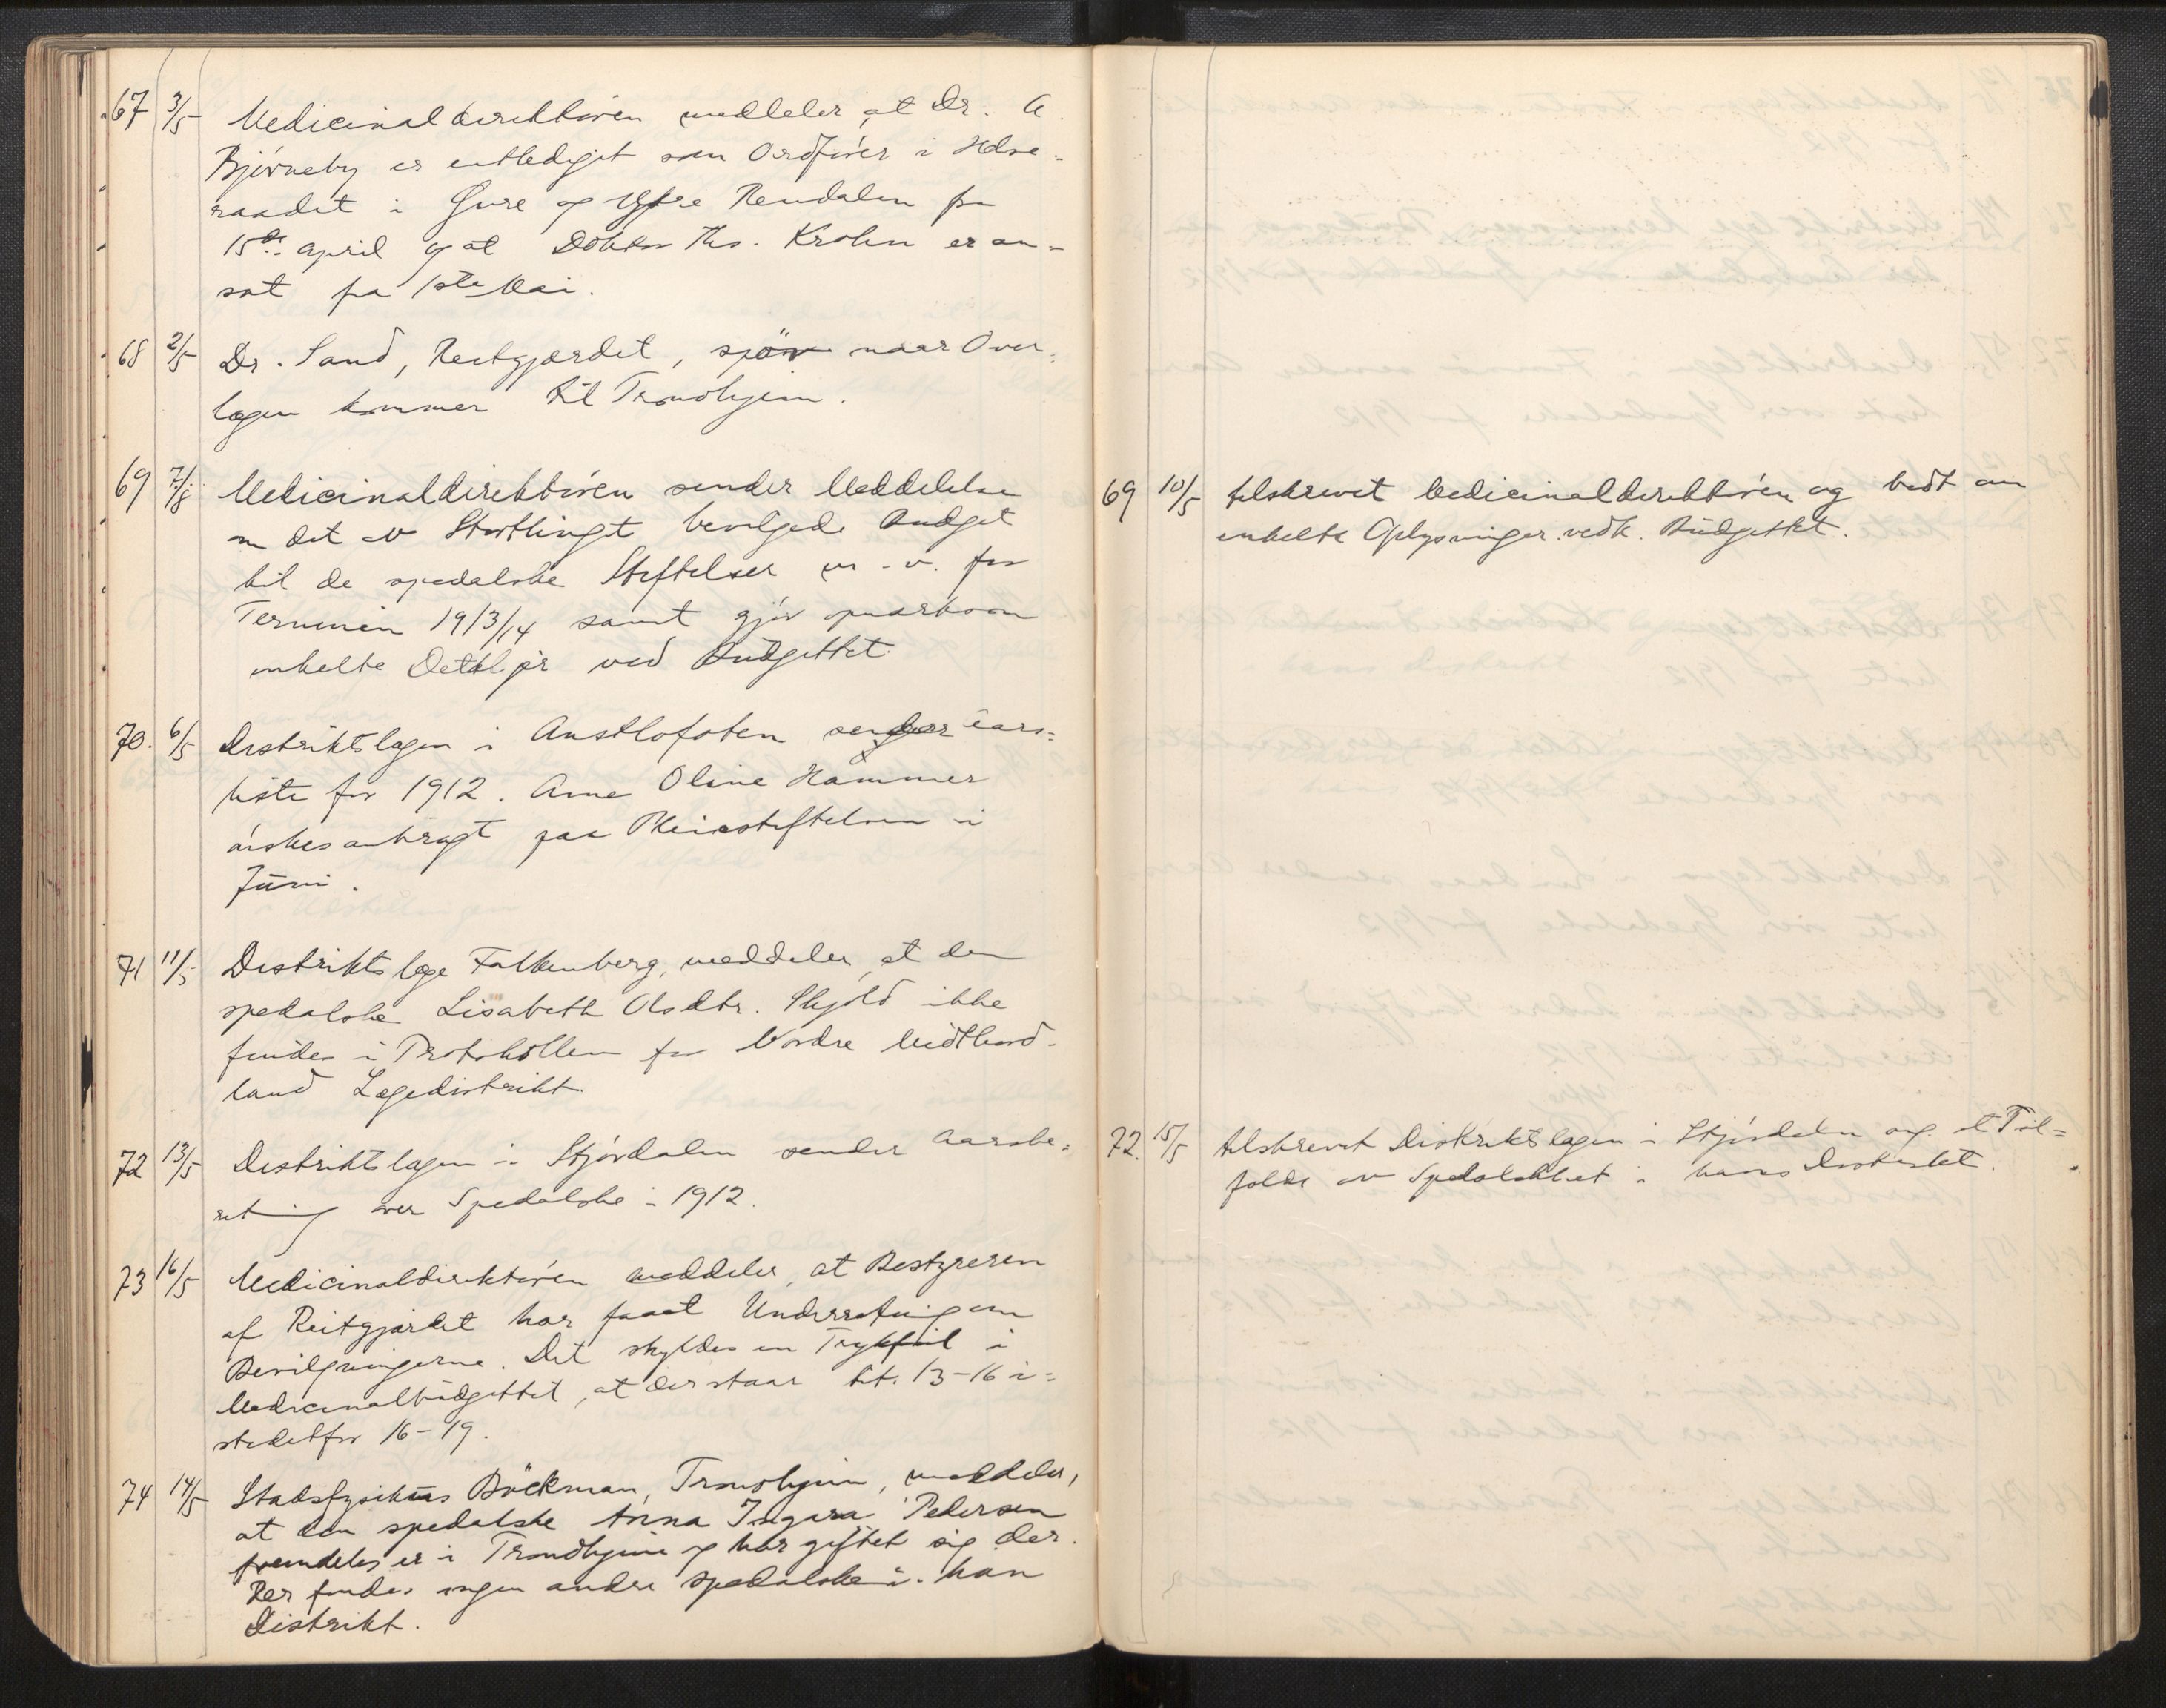 67 3/5 Medicinaldirektøren meddeler, at Dr. A.
Bjørneby er entlediget som Ordfører i Helse-
raadet i Øvre og Ytre Rendalen fra
15de april og at Doktor Ths. Krohn er an-
sat fra 1ste Mai.
68 2/5 Dr. Sand, Reitgjærdet, spør naar Over-
lægen kommer til Trondhjem.
69 7/5 Medicinaldirektøren sender Meddelelse
om det av Storthinget bevilgede Budget
til de spedalske Stiftelser m.v. for
Terminen 1913/14 samt gjør opmærksom
enkelte Detaljer ved Budgettet.
70. 6/5 Distriktslægen i Austlofoten sender aars-
liste for 1912. Arne Oline Hammer
ønskes anbragt paa Pleiestiftelsen i
Juni.
71 11/5 Distriktslæge Falkenberg, meddeler, at den
spedalske Lisabeth Olsdtr. Skjold ikke
findes i Protokollen for Nordre Midthord-
land Lægedistrikt.
72 13/5 Distriktslægen i Stjørdalen sender Aarsbe-
retning over Spedalske i 1912.
73 16/5 Medicinaldirektøren meddeler, at Bestyreren
af Reitgjærdet har faaet Underretning om
Bevilgningerne. Det skyldes en Trykfeil i
Medicinalbudgettet, at der staar tit. 13-16 i-
stedetfor 16-19.
74 14/5 Stadsfysikus Böckman, Trondhjem, meddeler,
at den spedalske Anna Ingara Pedersen
fremdeles er i Trondhjem og har giftet sig der.
Der findes ingen andre spedalske i han
Distrikt.
69 10/5 tilskrevet Medicinaldirektøren og bedt om
enkelte Oplysninger vedk. Budgettet.
72. 15/5 tilskrevet Distriktslægen i Stjørdalen ang. et Til-
fælde av Spedalskhet i hans Distrikt.